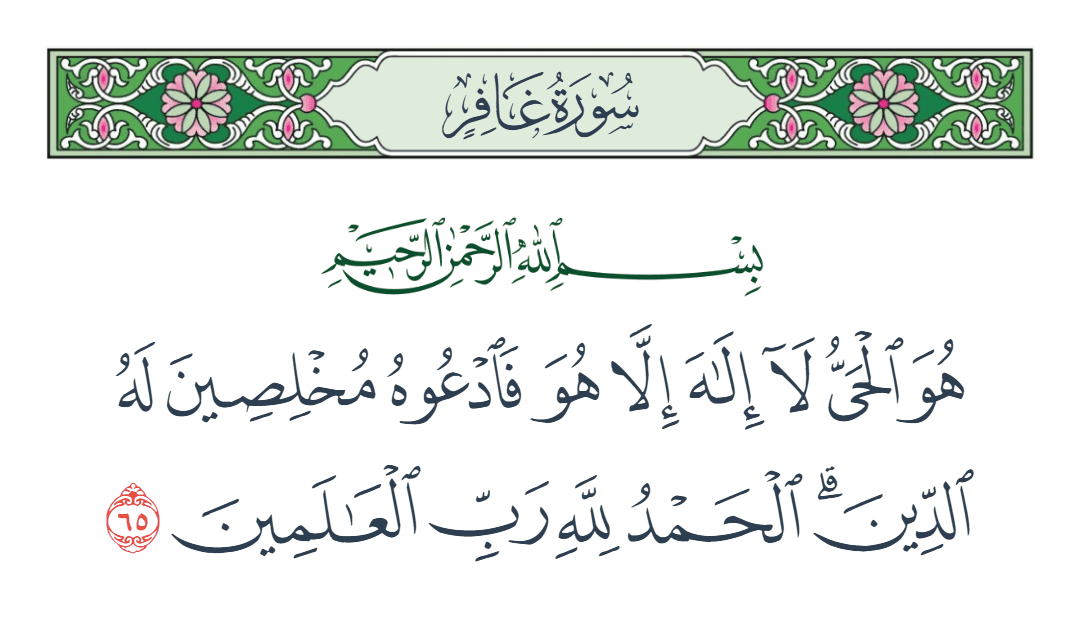 سُورَةُ غَافِرٍ
بِسْمِ ٱللَّهِ ٱلرَّحْمَٰنِ ٱلرَّحِيمِ
هُوَ ٱلْحَىُّ لَآ إِلَٰهَ إِلَّا هُوَ فَٱدْعُوهُ مُخْلِصِينَ لَهُ
ٱلدِّينَ ۗ ٱلْحَمْدُ لِلَّهِ رَبِّ ٱلْعَٰلَمِينَ ٦٥